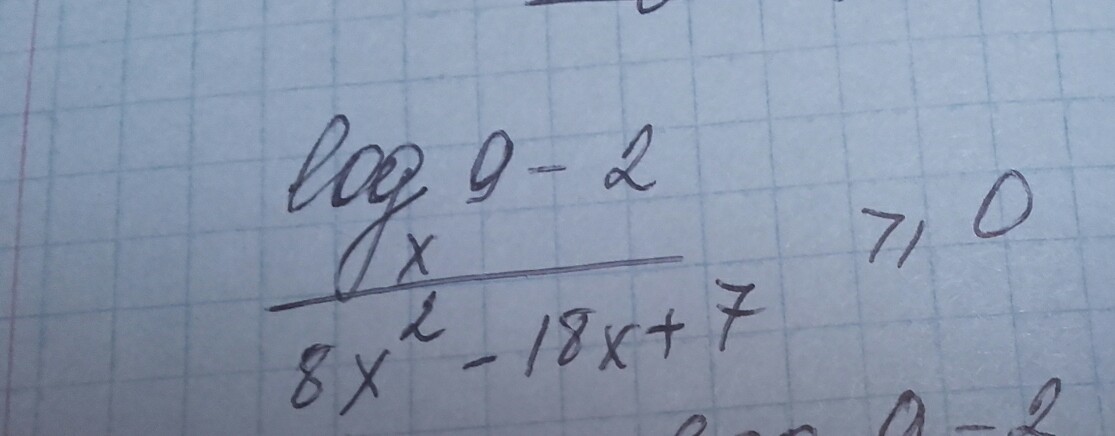 logₓ 9 - 2
⩾ 0
8x² - 18x + 7
9 - 2